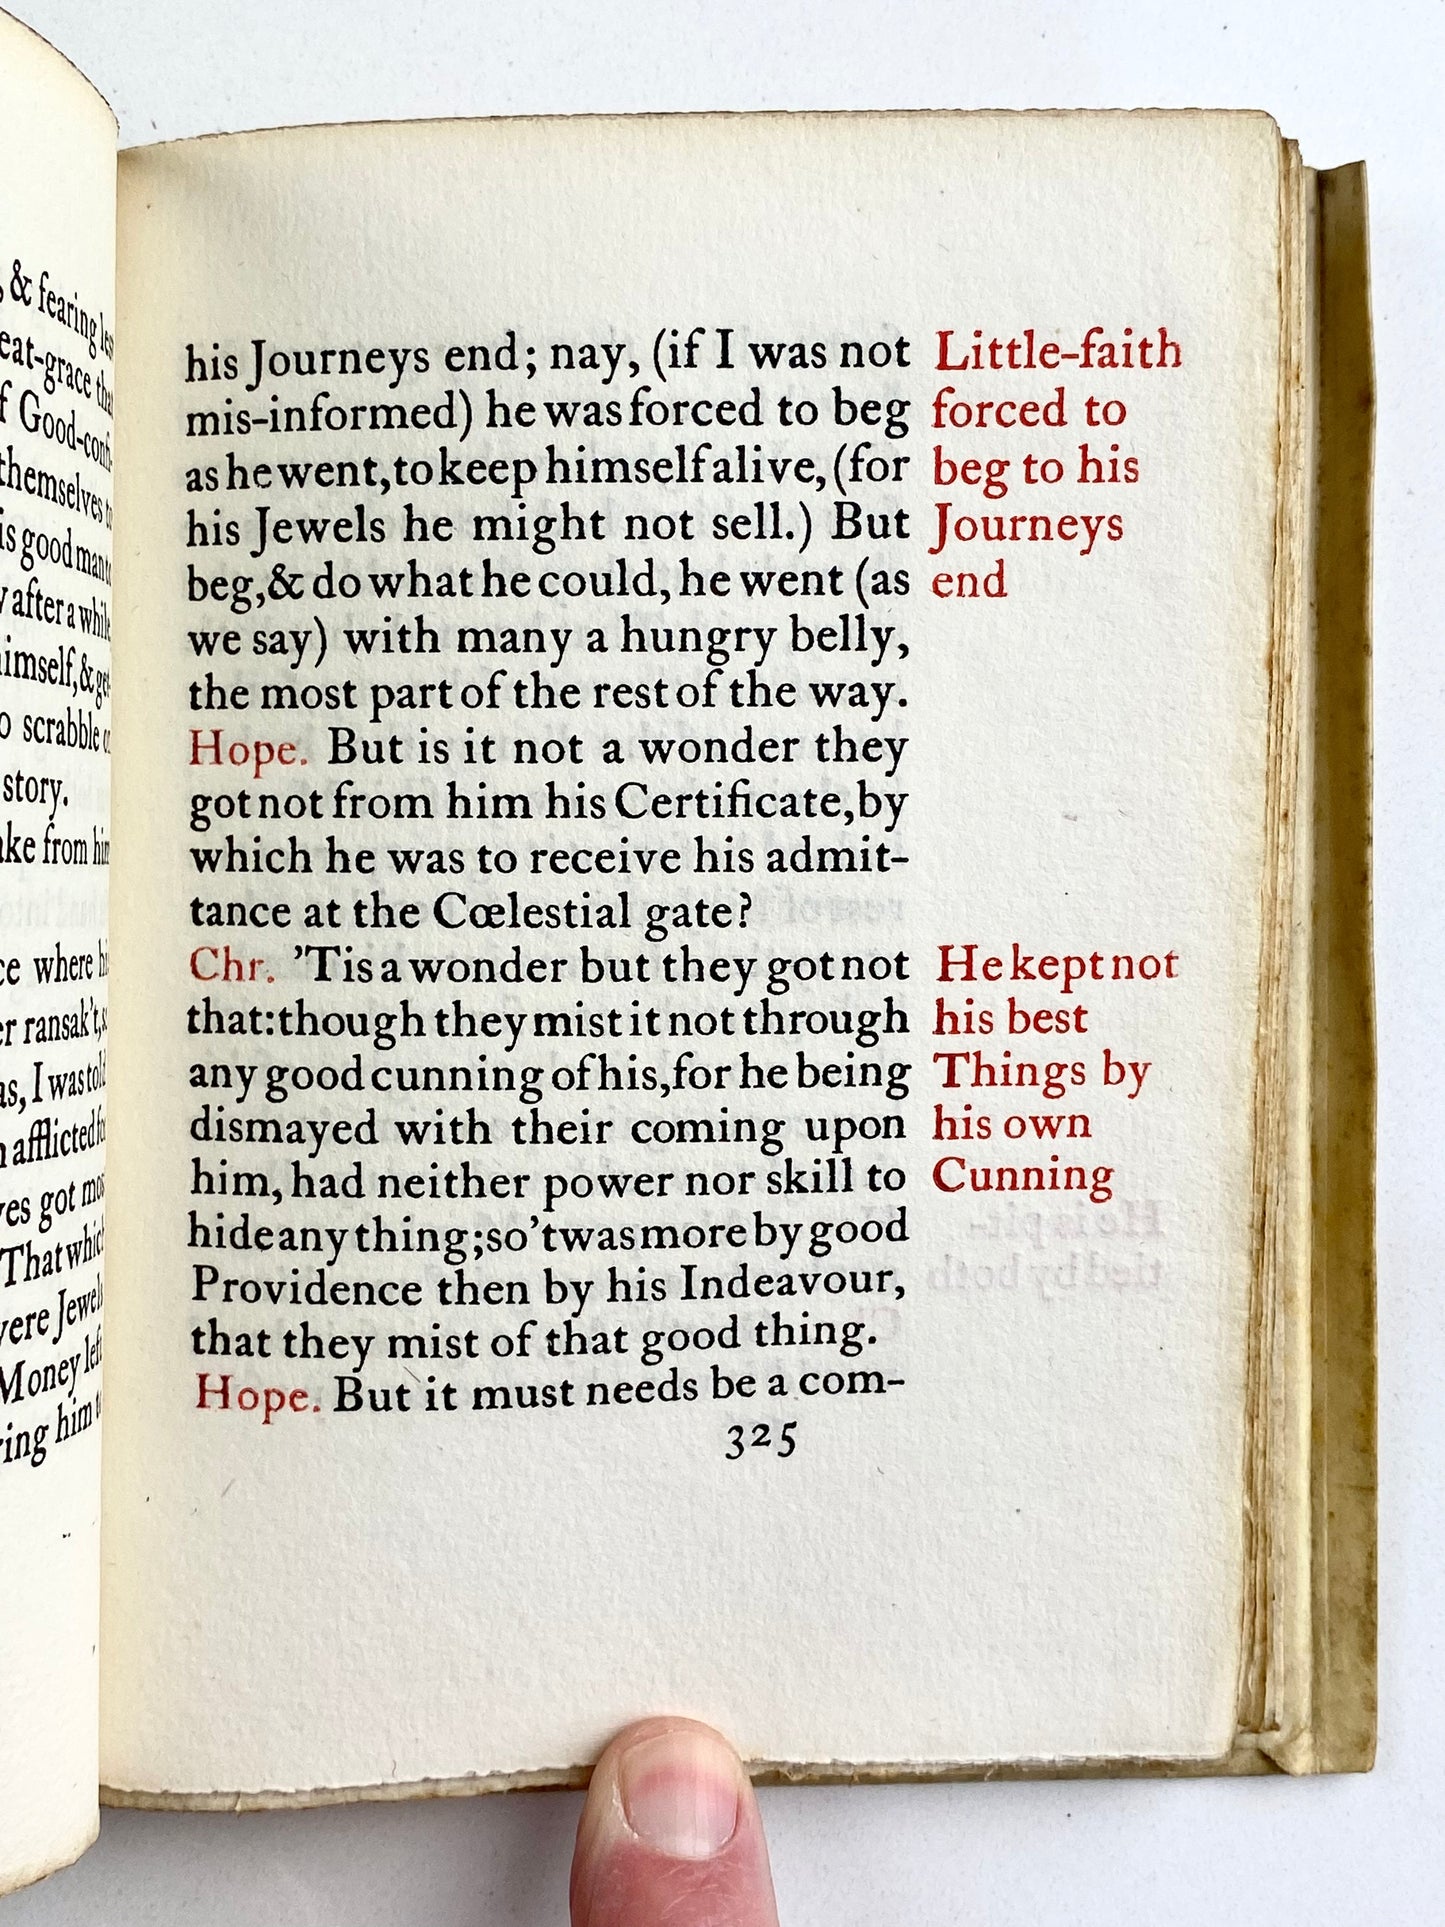 , & fearing les
eat-grace tha
f Good-conf-
themselves to
is good man to
y after a while
himself, & get
o scrabble on
story.
ake from him
ce where hi
er ransak't, s
as, I was told
afflicted for
ves got mos
That whic
were Jewels
Money left
ring him to
his Journeys end; nay, (if I was not
mis-informed) he was forced to beg
as he went, to keep himself alive, (for
his Jewels he might not sell.) But
beg, & do what he could, he went (as
we say) with many a hungry belly,
the most part of the rest of the way.
Hope. But is it not a wonder they
got not from him his Certificate, by
which he was to receive his admit-
tance at the Cœlestial gate?
Chr. 'Tis a wonder but they got not
that: though they mist it not through
any good cunning of his, for he being
dismayed with their coming upon
him, had neither power nor skill to
hide any thing; so 'twas more by good
Providence then by his Indeavour,
that they mist of that good thing.
Hope. But it must needs be a com-
Little-faith
forced to
beg to his
Journeys
end
He kept not
his best
Things by
his own
Cunning
325